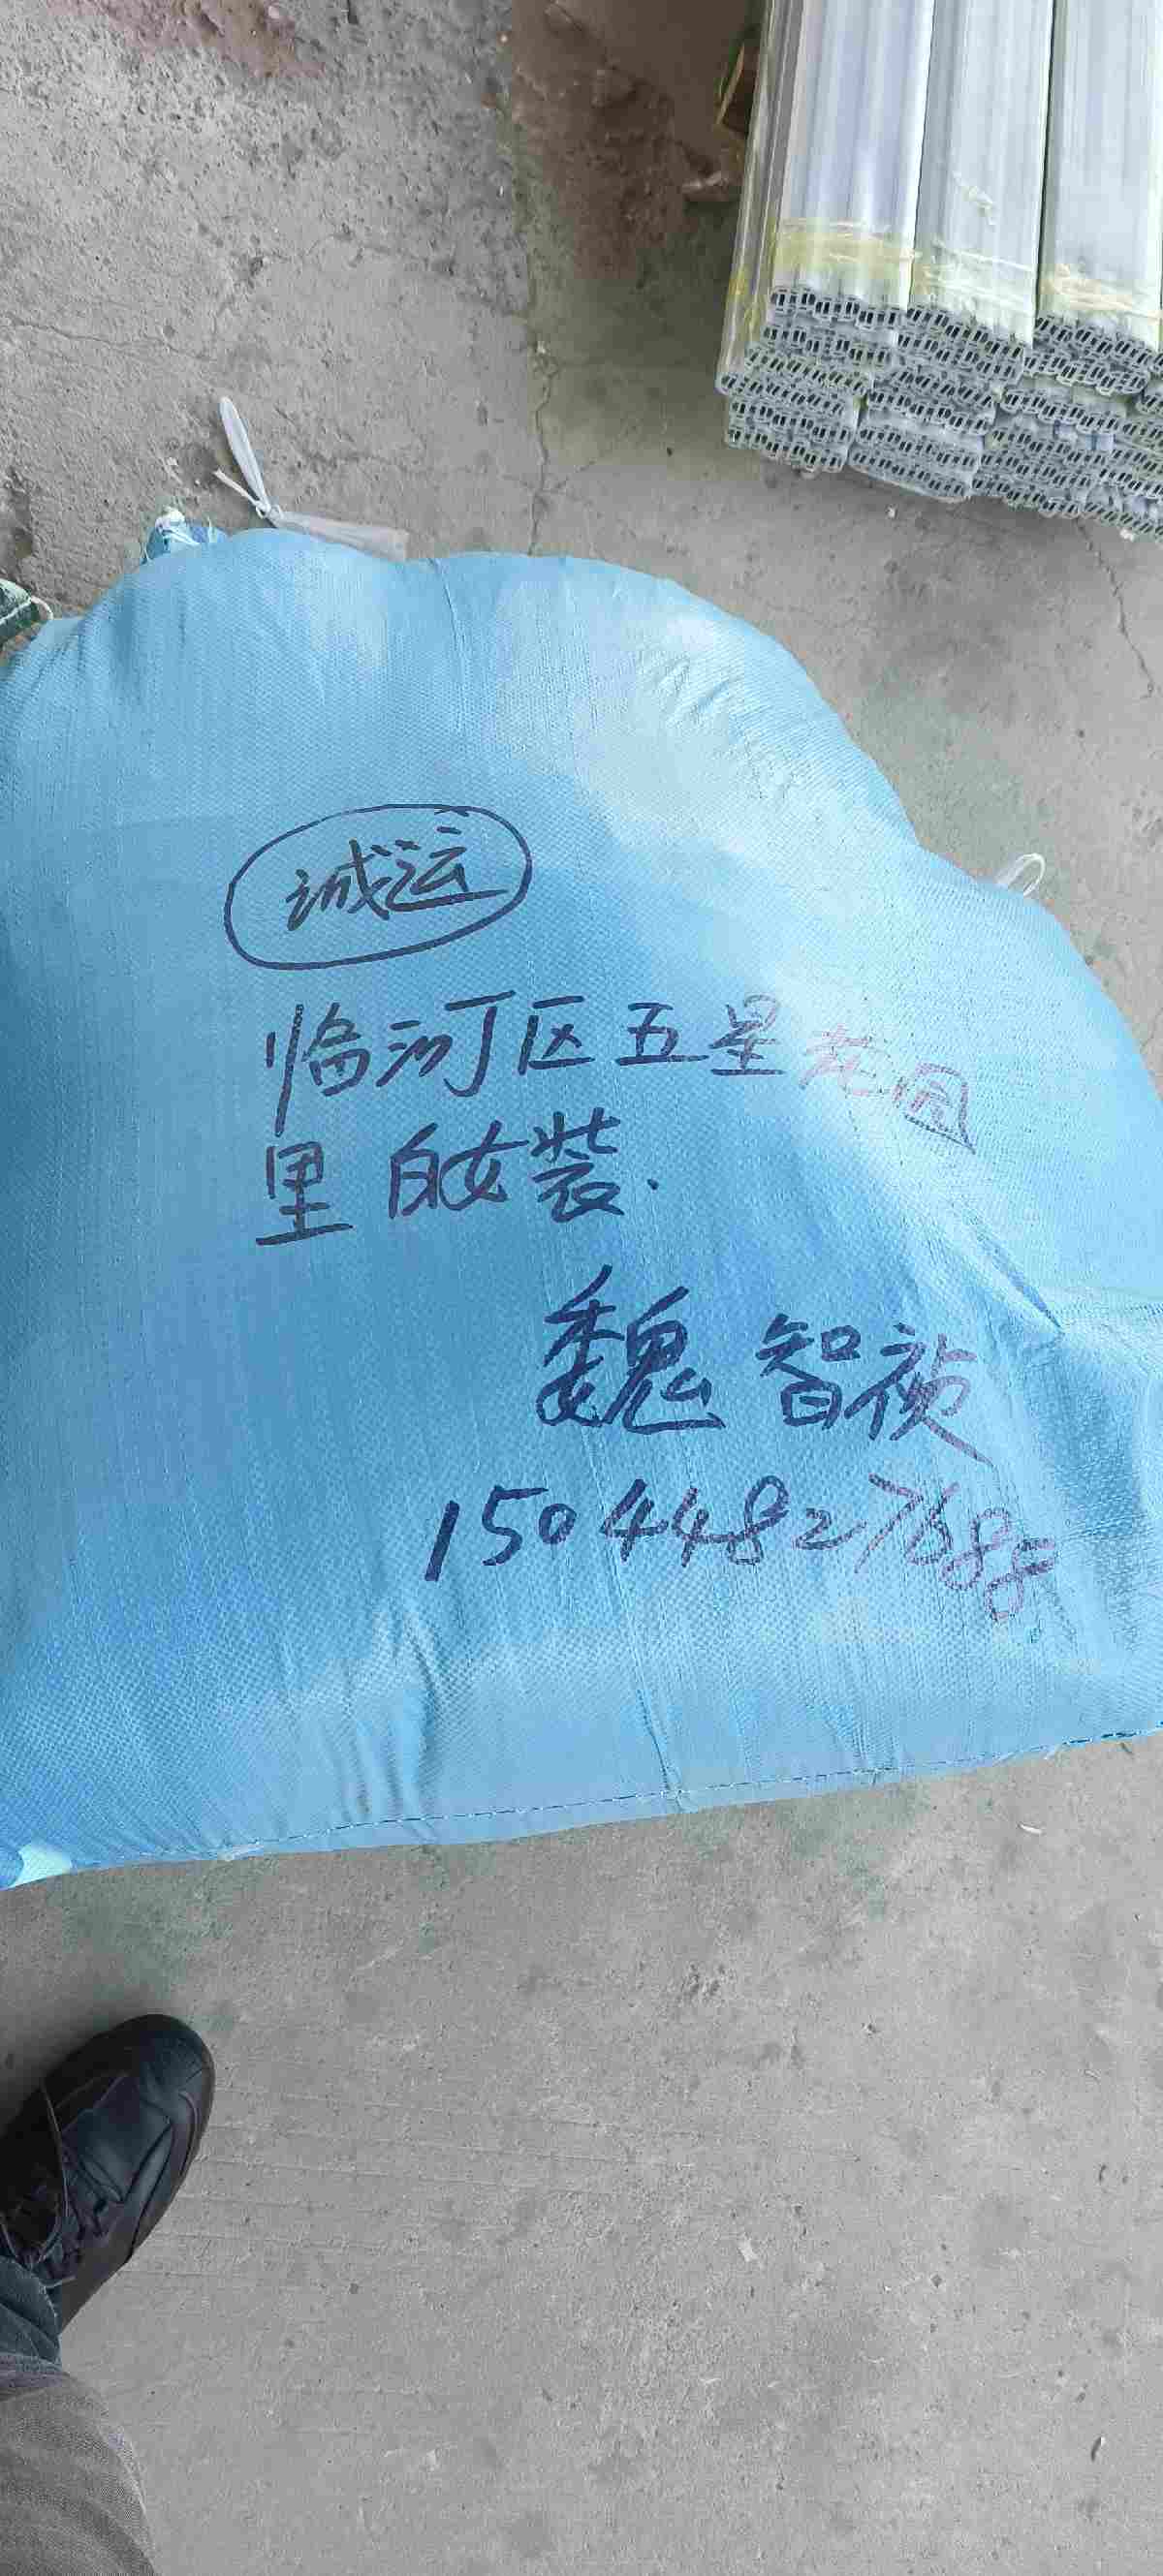 诚运
临河区五星花园
里的女装.
魏智祯
15044827688